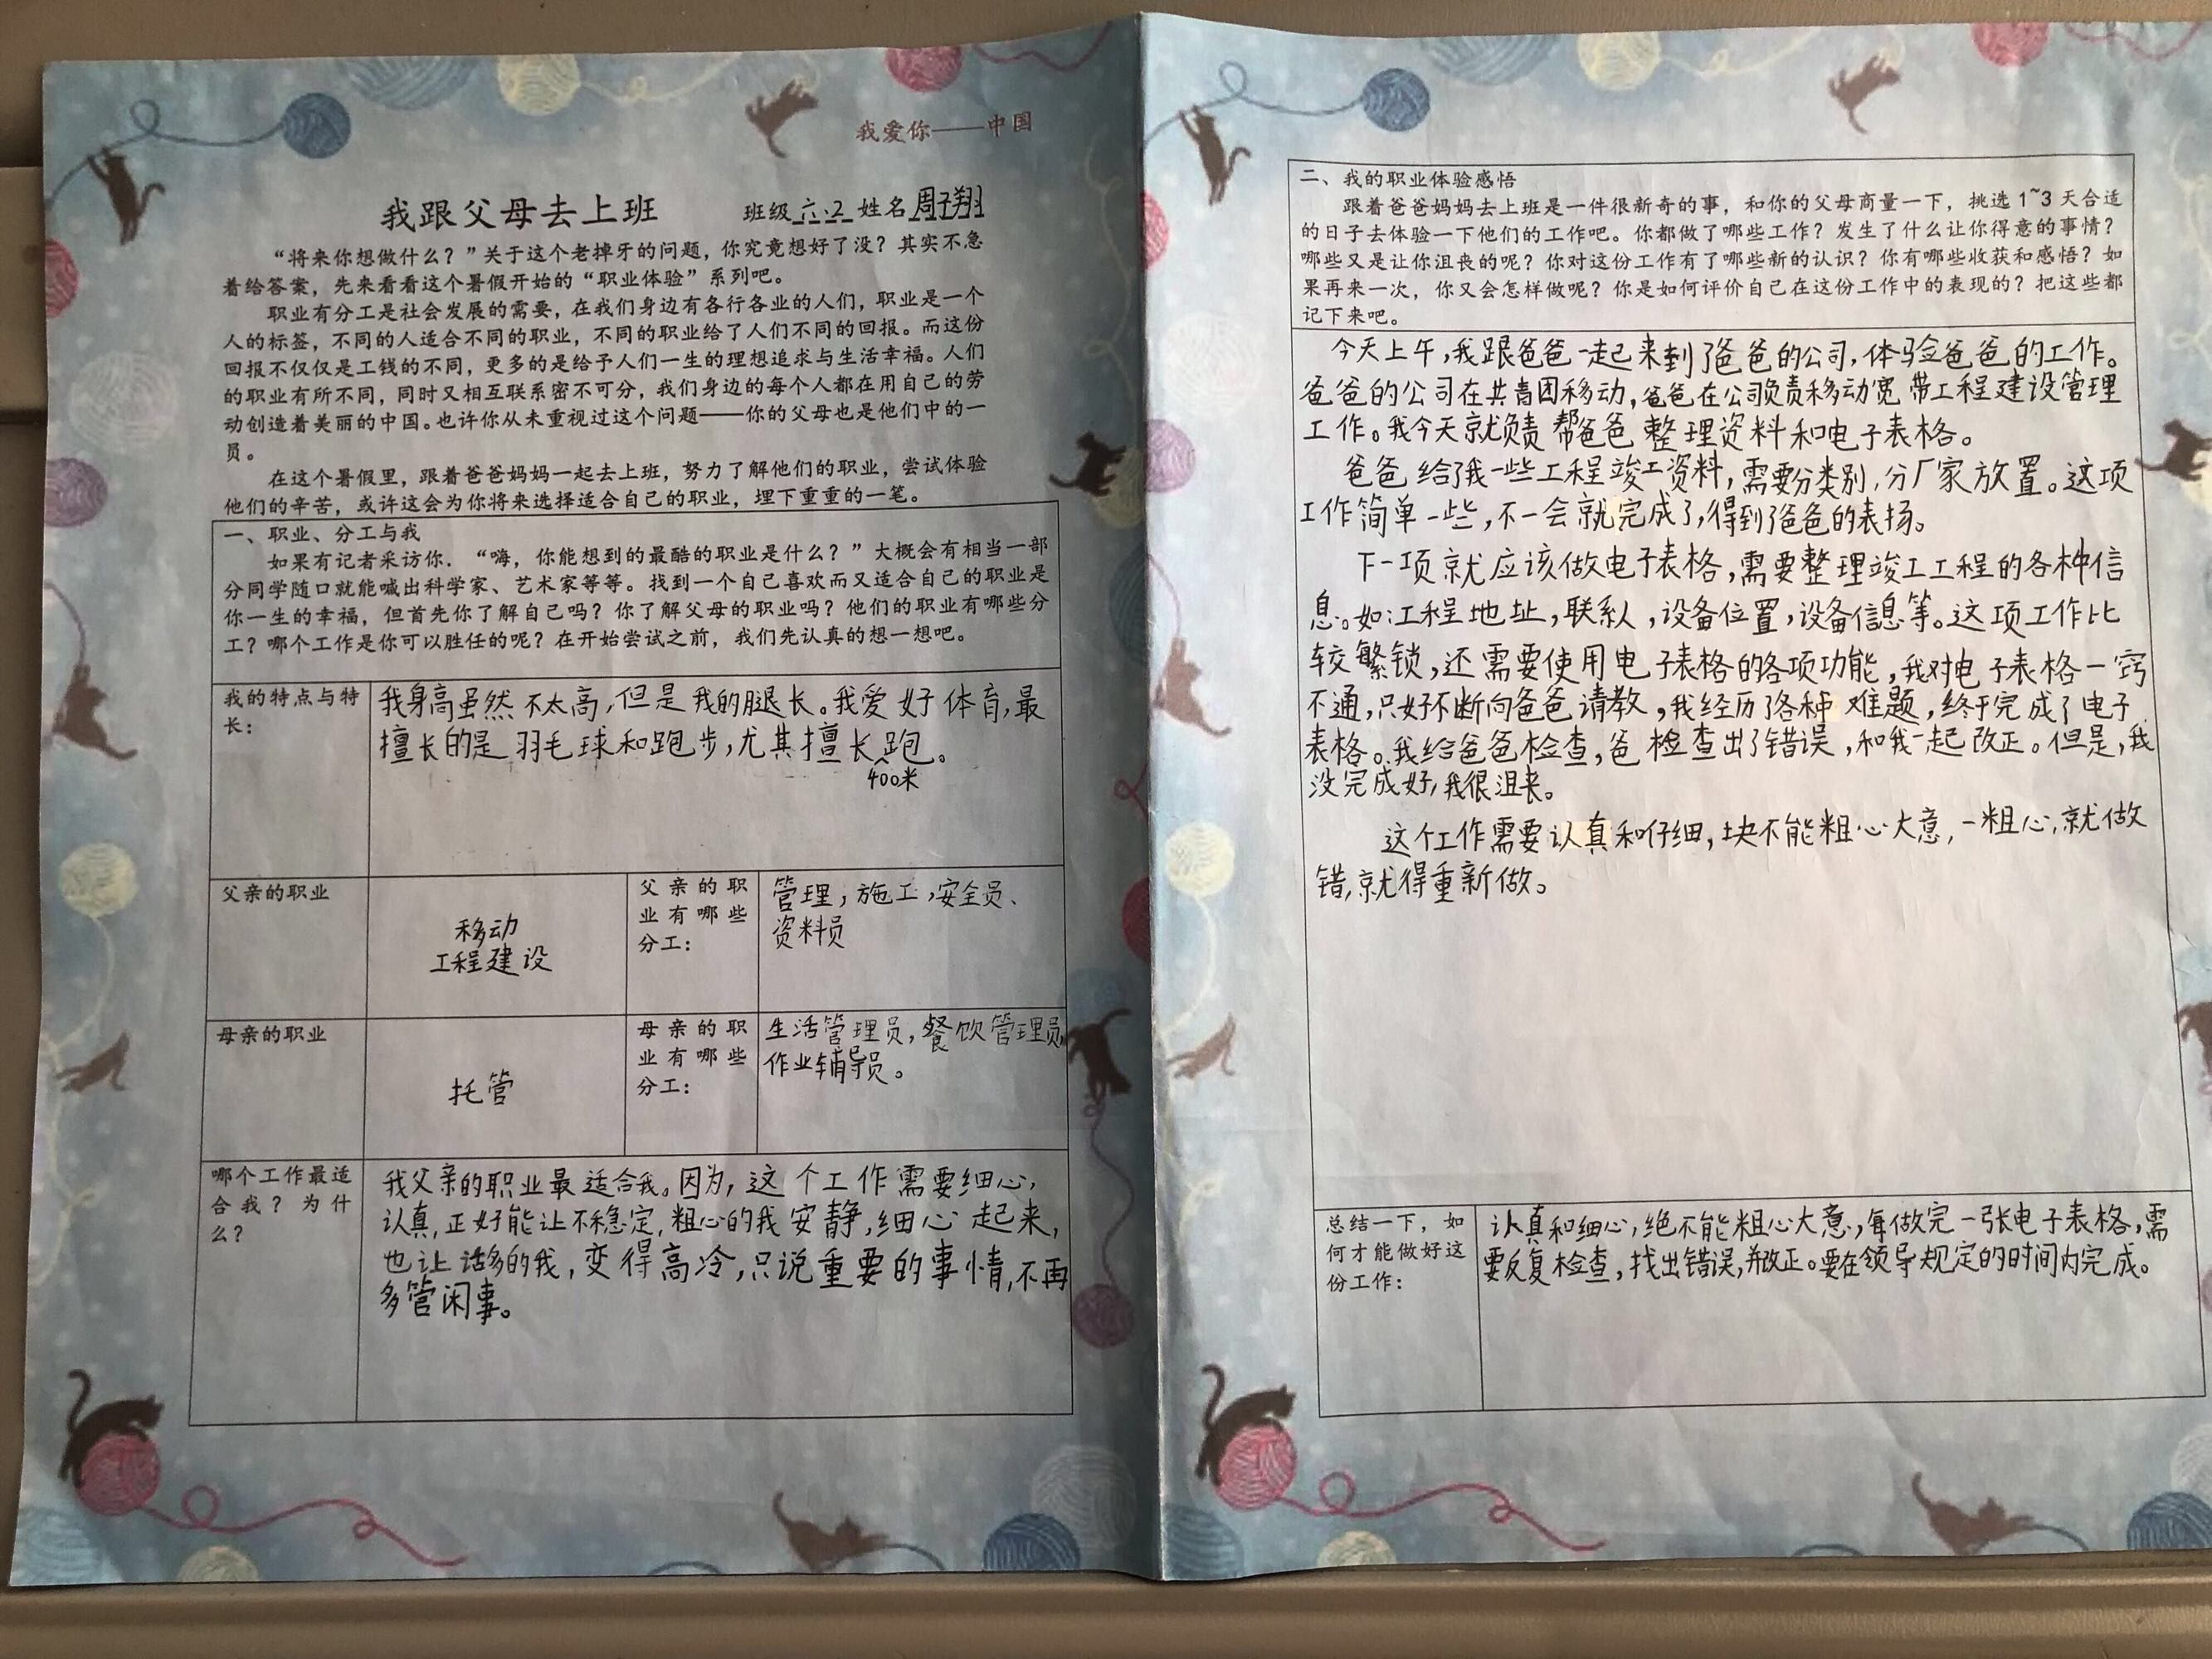 我爱你——中国
我跟父母去上班 班级 六.2 姓名 周子翔
“将来你想做什么？”关于这个老掉牙的问题，你究竟想好了没？其实不急
着给答案，先来看看这个暑假开始的“职业体验”系列吧。
职业有分工是社会发展的需要，在我们身边有各行各业的人们，职业是一个
人的标签，不同的人适合不同的职业，不同的职业给了人们不同的回报。而这份
回报不仅仅是工钱的不同，更多的是给予人们一生的理想追求与生活幸福。人们
的职业有所不同，同时又相互联系密不可分，我们身边的每个人都在用自己的劳
动创造着美丽的中国。也许你从未重视过这个问题——你的父母也是他们中的一
员。
在这个暑假里，跟着爸爸妈妈一起去上班，努力了解他们的职业，尝试体验
他们的辛苦，或许这会为你将来选择适合自己的职业，埋下重重的一笔。
一、职业、分工与我
如果有记者采访你．“嗨，你能想到的最酷的职业是什么？”大概会有相当一部
分同学随口就能喊出科学家、艺术家等等。找到一个自己喜欢而又适合自己的职业是
你一生的幸福，但首先你了解自己吗？你了解父母的职业吗？他们的职业有哪些分
工？哪个工作是你可以胜任的呢？在开始尝试之前，我们先认真的想一想吧。
我的特点与特
长：
我身高虽然不太高，但是我的腿长。我爱好体育，最
擅长的是羽毛球和跑步，尤其擅长跑。
400米
父亲的职业
移动
工程建设
父亲的职
业有哪些
分工：
管理，施工，安全员、
资料员
母亲的职业
托管
母亲的职
业有哪些
分工：
生活管理员，餐饮管理员
作业辅导员。
哪个工作最适
合我？为什
么？
我父亲的职业最适合我。因为，这个工作需要细心，
认真，正好能让不稳定，粗心的我安静，细心起来，
也让话多的我，变得高冷，只说重要的事情，不再
多管闲事。
二、我的职业体验感悟
跟着爸爸妈妈去上班是一件很新奇的事，和你的父母商量一下，挑选1~3天合适
的日子去体验一下他们的工作吧。你都做了哪些工作？发生了什么让你得意的事情？
哪些又是让你沮丧的呢？你对这份工作有了哪些新的认识？你有哪些收获和感悟？如
果再来一次，你又会怎样做呢？你是如何评价自己在这份工作中的表现的？把这些都
记下来吧。
今天上午，我跟爸爸一起来到了爸爸的公司，体验爸爸的工作。
爸爸的公司在共青团移动，爸爸在公司负责移动宽带工程建设管理
工作。我今天就负责帮爸爸整理资料和电子表格。
爸爸给了我一些工程竣工资料，需要分类别，分厂家放置。这项
工作简单一些，不一会就完成了，得到了爸爸的表扬。
下一项就应该做电子表格，需要整理竣工工程的各种信
息。如：工程地址，联系人，设备位置，设备信息等。这项工作比
较繁锁，还需要使用电子表格的各项功能，我对电子表格一窍
不通，只好不断向爸爸请教，我经历了各种难题，终于完成了电子
表格。我给爸爸检查，爸检查出了错误，和我一起改正。但是，我
没完成好，我很沮丧。
这个工作需要认真和仔细，块不能粗心大意，一粗心，就做
错，就得重新做。
总结一下，如
何才能做好这
份工作：
认真和细心，绝不能粗心大意，每做完一张电子表格，需
要反复检查，找出错误，并改正。要在领导规定的时间内完成。